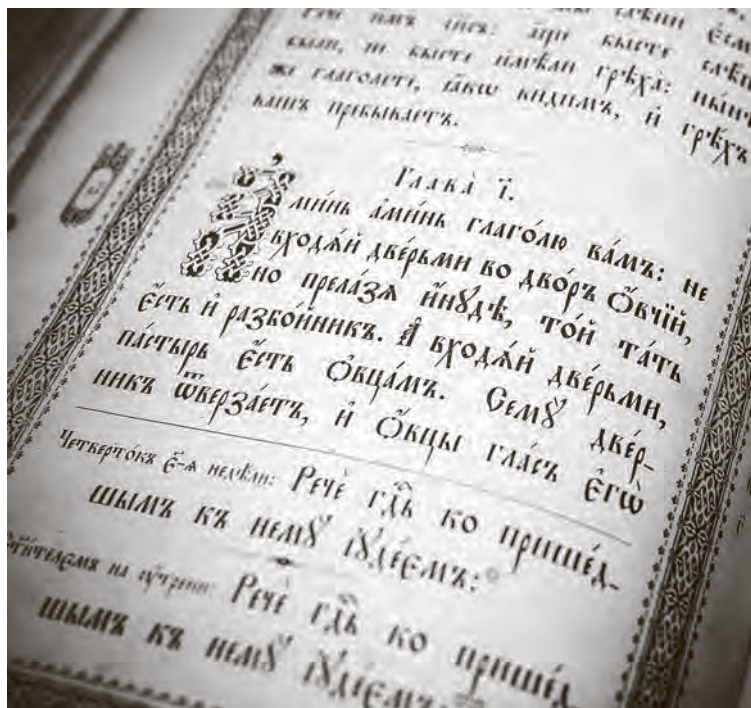 слѣпи є҆см
Рече имъ і҆и҃съ: а҆ще бысте слѣпи
были, не бысте и҆мѣли грѣха: нынѣ
же глаголете, ꙗ҆кѡ видимъ, и҆ грѣхъ
вашъ пребываетъ.
Глава̀ і҃.
А҆ми́нь а҆ми́нь глаго́лю ва́мъ: не
входѧ́й две́рьми во дво́ръ ѻ҆́вчїй,
но прела́зѧ и҆нꙋ́дѣ, то́й та́ть
є҆́сть и҆ разбо́йник. А҆ входѧ́й две́рьми,
па́стырь є҆́сть ѻ҆вца́мъ. Семꙋ̀ две́р-
никъ ѿверза́етъ, и҆ ѻ҆́вцы гла́съ є҆гѡ̀
Четверто́къ є҃-ѧ недѣли: Речѐ гдⷭ҇ь ко прише́д-
шымъ къ немꙋ̀ і҆ꙋде́ємъ:
на ᲂу҆трени: Речѐ гдⷭ҇ь ко прише́д-
шымъ къ немꙋ̀ і҆ꙋде́ємъ: